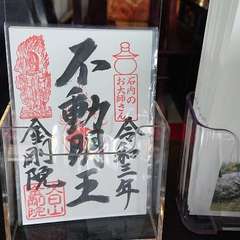 石内の
お大師さん
令和三年
不動明王
金剛院